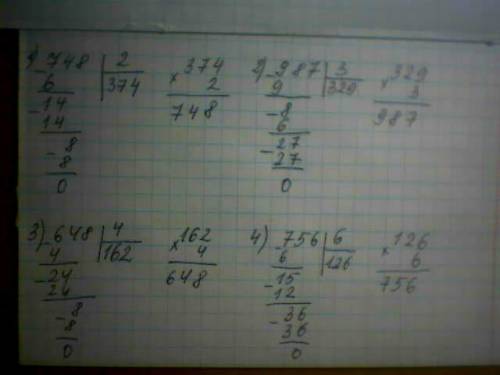 1) 748 | 2     374     2) 987 | 3     329
- 6 | 374   × 2     - 9 | 329   × 3
- 14     748     - 8     987
14     6
- 8     - 27
8     27
0     0
3) 648 | 4     162     4) 756 | 6     126
- 4 | 162   × 4     - 6 | 126   × 6
- 24     648     - 15     756
24     12
- 8     - 36
8     36
0     0